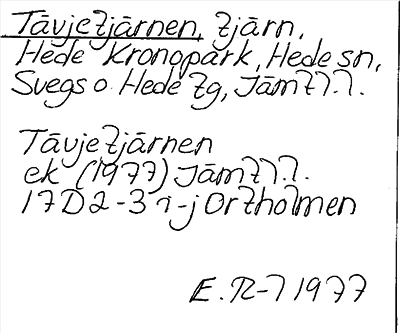 Tåvjetjärnen, tjärn,
Hede Kronopark, Hede sn,
Svegs o Hede tg, Jämtl.l.
Tåvjetjärnen
ek (1977) Jämtl.l.
17D2-3 i-j Ortholmen
E.R-l 1977